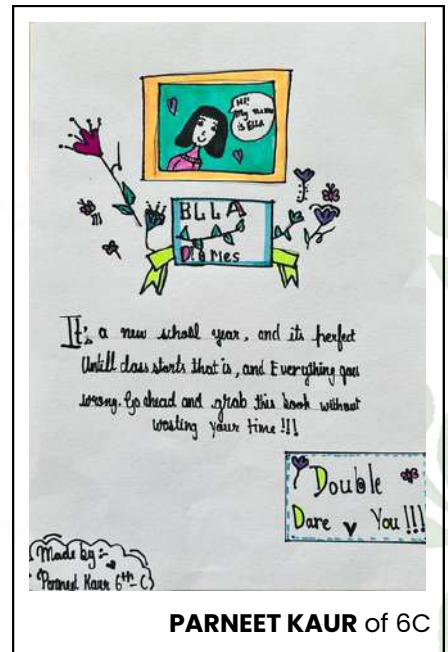 Hi!
My name
is Ella
ELLA
Diaries
It's a new school year, and its perfect
Untill class starts that is, and Everything goes
wrong. Go ahead and grab this book without
wasting your time !!!
Double
Dare You !!!
Made by :-
Parneet Kaur 6th-C
PARNEET KAUR of 6C